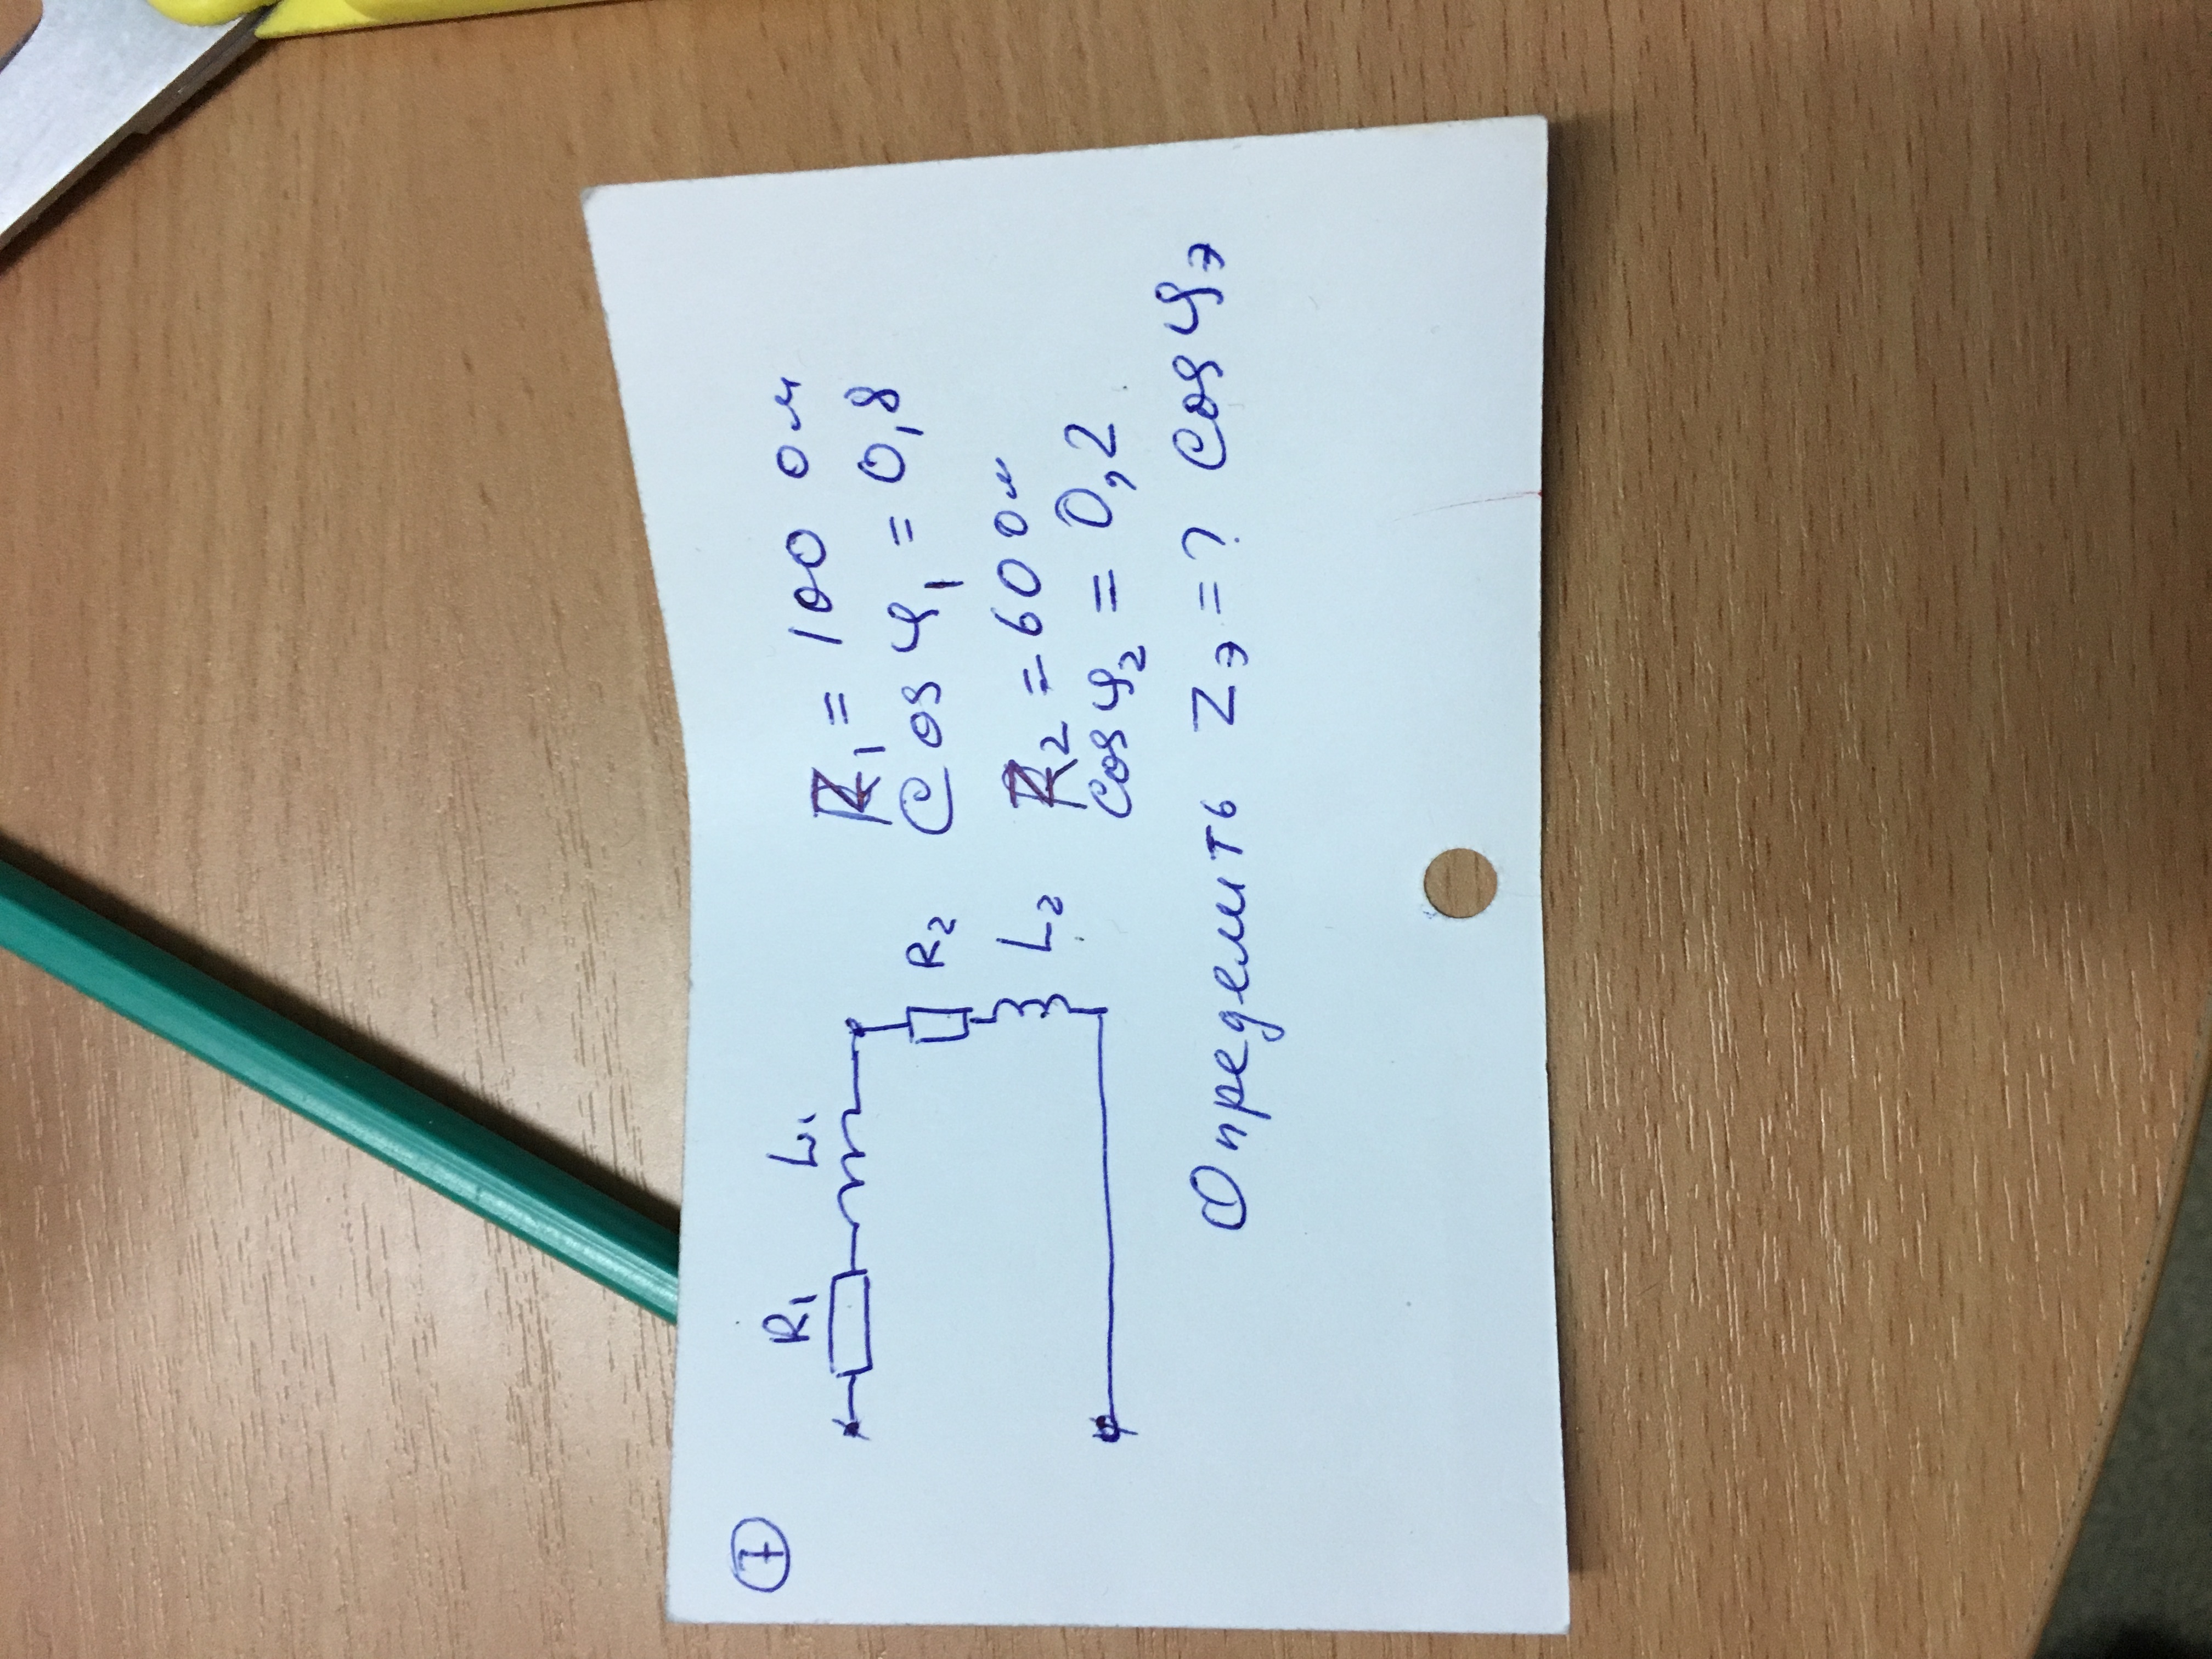 7
R₁ L₁
R₂
L₂
Z₁ = 100 Ом
Cos φ₁ = 0,8
Z₂ = 60 Ом
Cos φ₂ = 0,2
Определить Zэ = ? Cos φэ